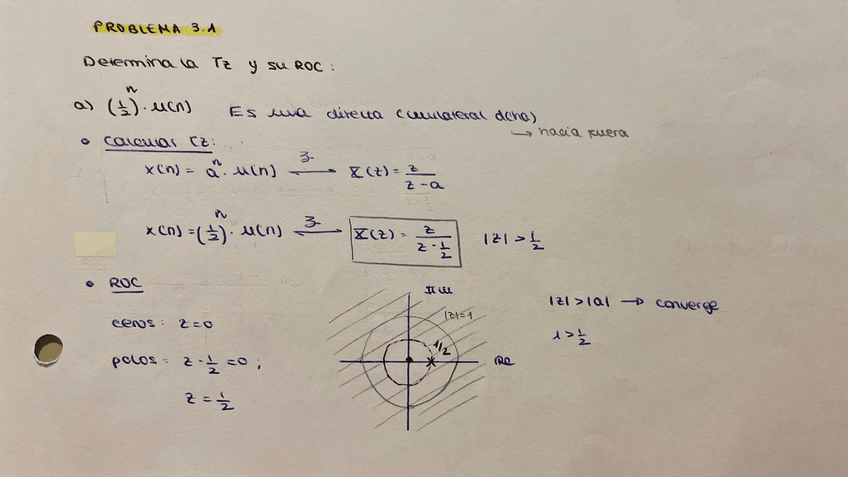 PROBLEMA 3.1
Determina la Tz y su ROC:
a) (1/2)^n · u(n) Es una directa (unilateral dcha)
→ hacia fuera
• Calcular Tz:
x(n) = a^n · u(n) ⟷ X(z) = z/(z-a)
x(n) = (1/2)^n · u(n) ⟷ X(z) = z/(z-1/2) |z| > 1/2
• ROC
ceros: z=0
polos: z-1/2=0;
z = 1/2
Im
|z|=1
1/2
Re
|z|>|a| → converge
1 > 1/2